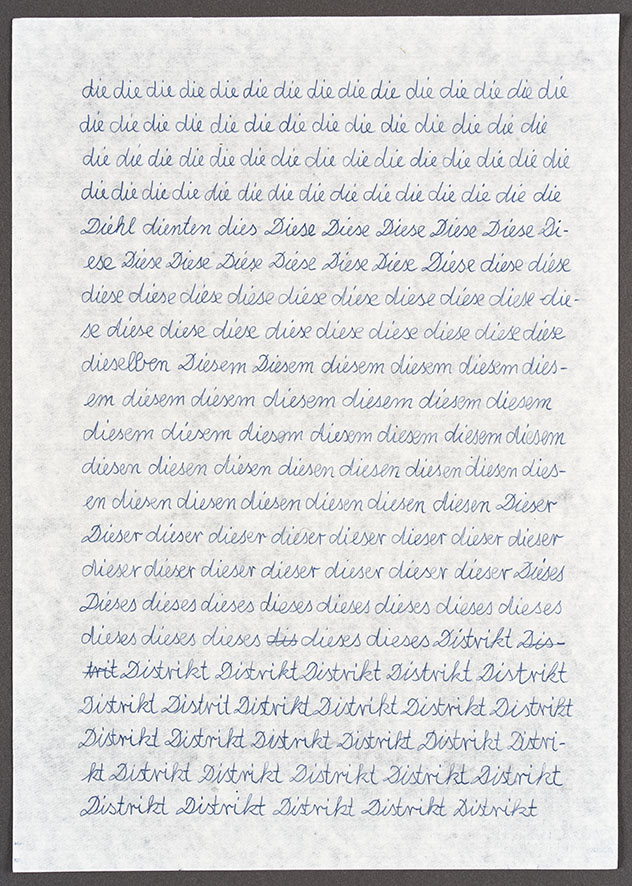 die die die die die die die die die die die die die die die
die die die die die die die die die die die die die die
die die die die die die die die die die die die die die die
die die die die die die die die die die die die die die die
Diehl dienten dies Diese Diese Diese Diese Diese Di-
ese Diese Diese Diese Diese Diese Diese Diese diese diese
diese diese diese diese diese diese diese diese diese die-
se diese diese diese diese diese diese diese diese diese
dieselben Diesem Diesem diesem diesem diesem dies-
em diesem diesem diesem diesem diesem diesem
diesem diesem diesem diesem diesem diesem diesem
diesen diesen diesen diesen diesen diesen diesen dies-
en diesen diesen diesen diesen diesen diesen Dieser
Dieser dieser dieser dieser dieser dieser dieser dieser
dieser dieser dieser dieser dieser dieser dieser Dieses
Dieses dieses dieses dieses dieses dieses dieses dieses
dieses dieses dieses dis dieses dieses Distrikt Dis-
trit Distrikt Distrikt Distrikt Distrikt Distrikt
Distrikt Distrit Distrikt Distrikt Distrikt Distrikt
Distrikt Distrikt Distrikt Distrikt Distrikt Distri-
kt Distrikt Distrikt Distrikt Distrikt Distrikt
Distrikt Distrikt Distrikt Distrikt Distrikt